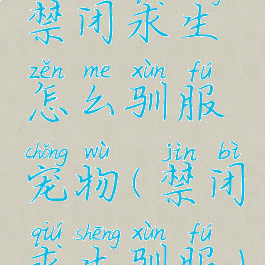 禁闭求生
zěn me xùn fú
怎么驯服
chǒng wù jìn bì
宠物(禁闭
qiú shēng xùn fú
求生驯服)